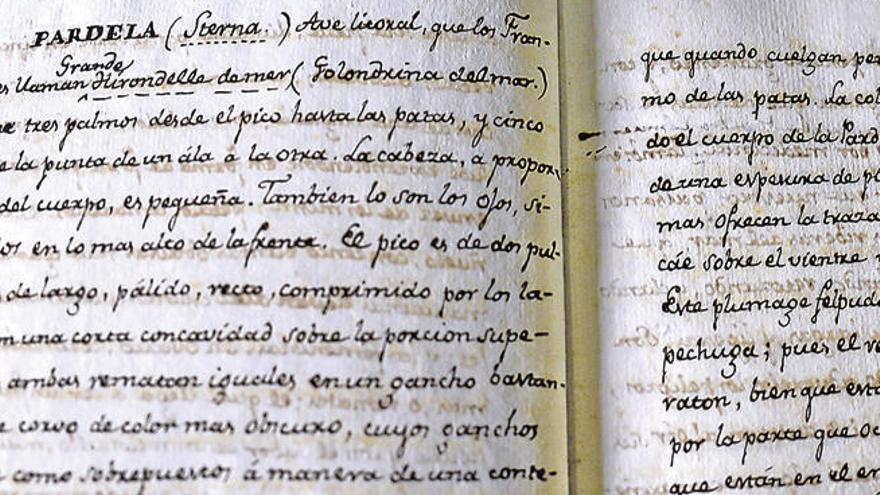 PARDELA (Sterna.) Ave litoral, que los Fran-
Grande
es llaman Hirondelle de mer (Golondrina del mar.)
tres palmos desde el pico hasta las patas, y cinco
e la punta de un ála à la otra. La cabeza, a propor
del cuerpo, es pequeña. Tambien lo son los ojos, si-
dos en lo mas alto de la frente. El pico es de dos pul-
de largo, pálido, recto, comprimido por los la-
n una corta concavidad sobre la porcion supe-
ambas rematan iguales en un gancho bastan-
e corvo de color mas obscuro, cuyos ganchos
como sobrepuestos á manera de una conte-
que quando cuelgan pa
mo de las patas. La col
do el cuerpo de la Pard
de una espesura de pl
mas ofrecen la traza
cáe sobre el vientre
Este plumage felpud
pechuga; pues el r
raton, bien que está
por la parte que oc
que están en el en